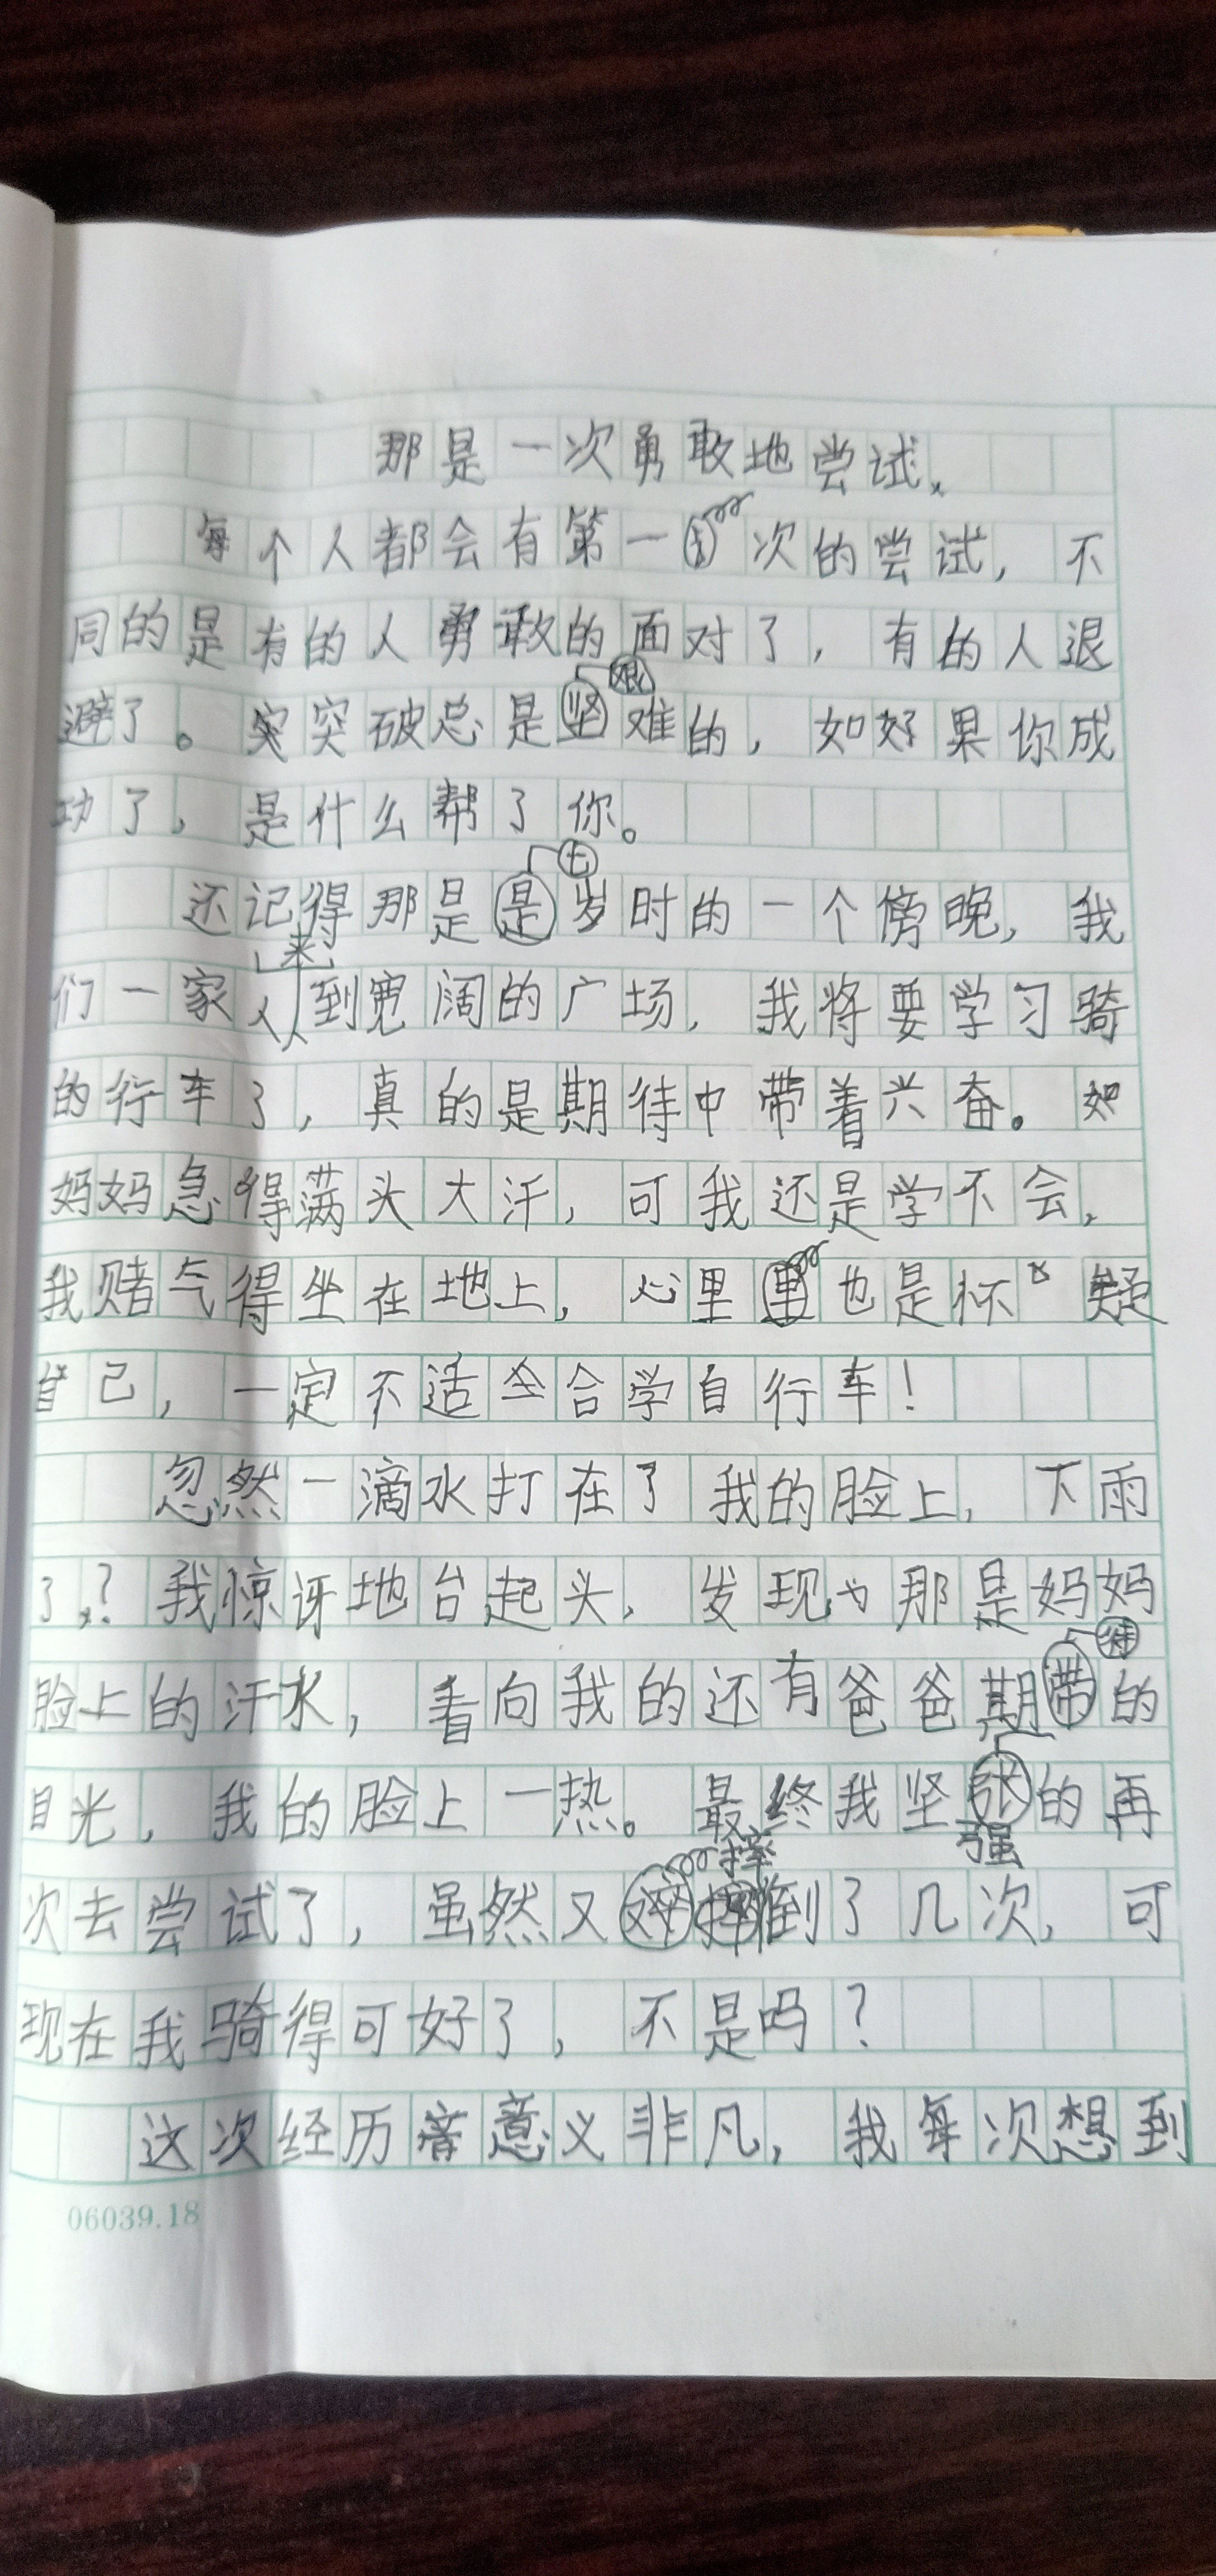 那是一次勇敢地尝试
每个人都会有第一次的尝试，不
同的是有的人勇敢的面对了，有的人退
避了。突破总是艰难的，如果你成
功了，是什么帮了你。
还记得那是七岁时的一个傍晚，我
们一家人来到宽阔的广场，我将要学习骑
的行车了，真的是期待中带着兴奋。
妈妈急得满头大汗，可我还是学不会，
我赌气得坐在地上，心里也是怀疑
自己，一定不适合学自行车！
忽然一滴水打在了我的脸上，下雨
了？我惊讶地台起头，发现那是妈妈
脸上的汗水，看向我的还有爸爸期待的
目光，我的脸上一热。最终我坚强的再
次去尝试了，虽然又摔倒了几次，可
现在我骑得可好了，不是吗？
这次经历意义非凡，我每次想到
06039.18